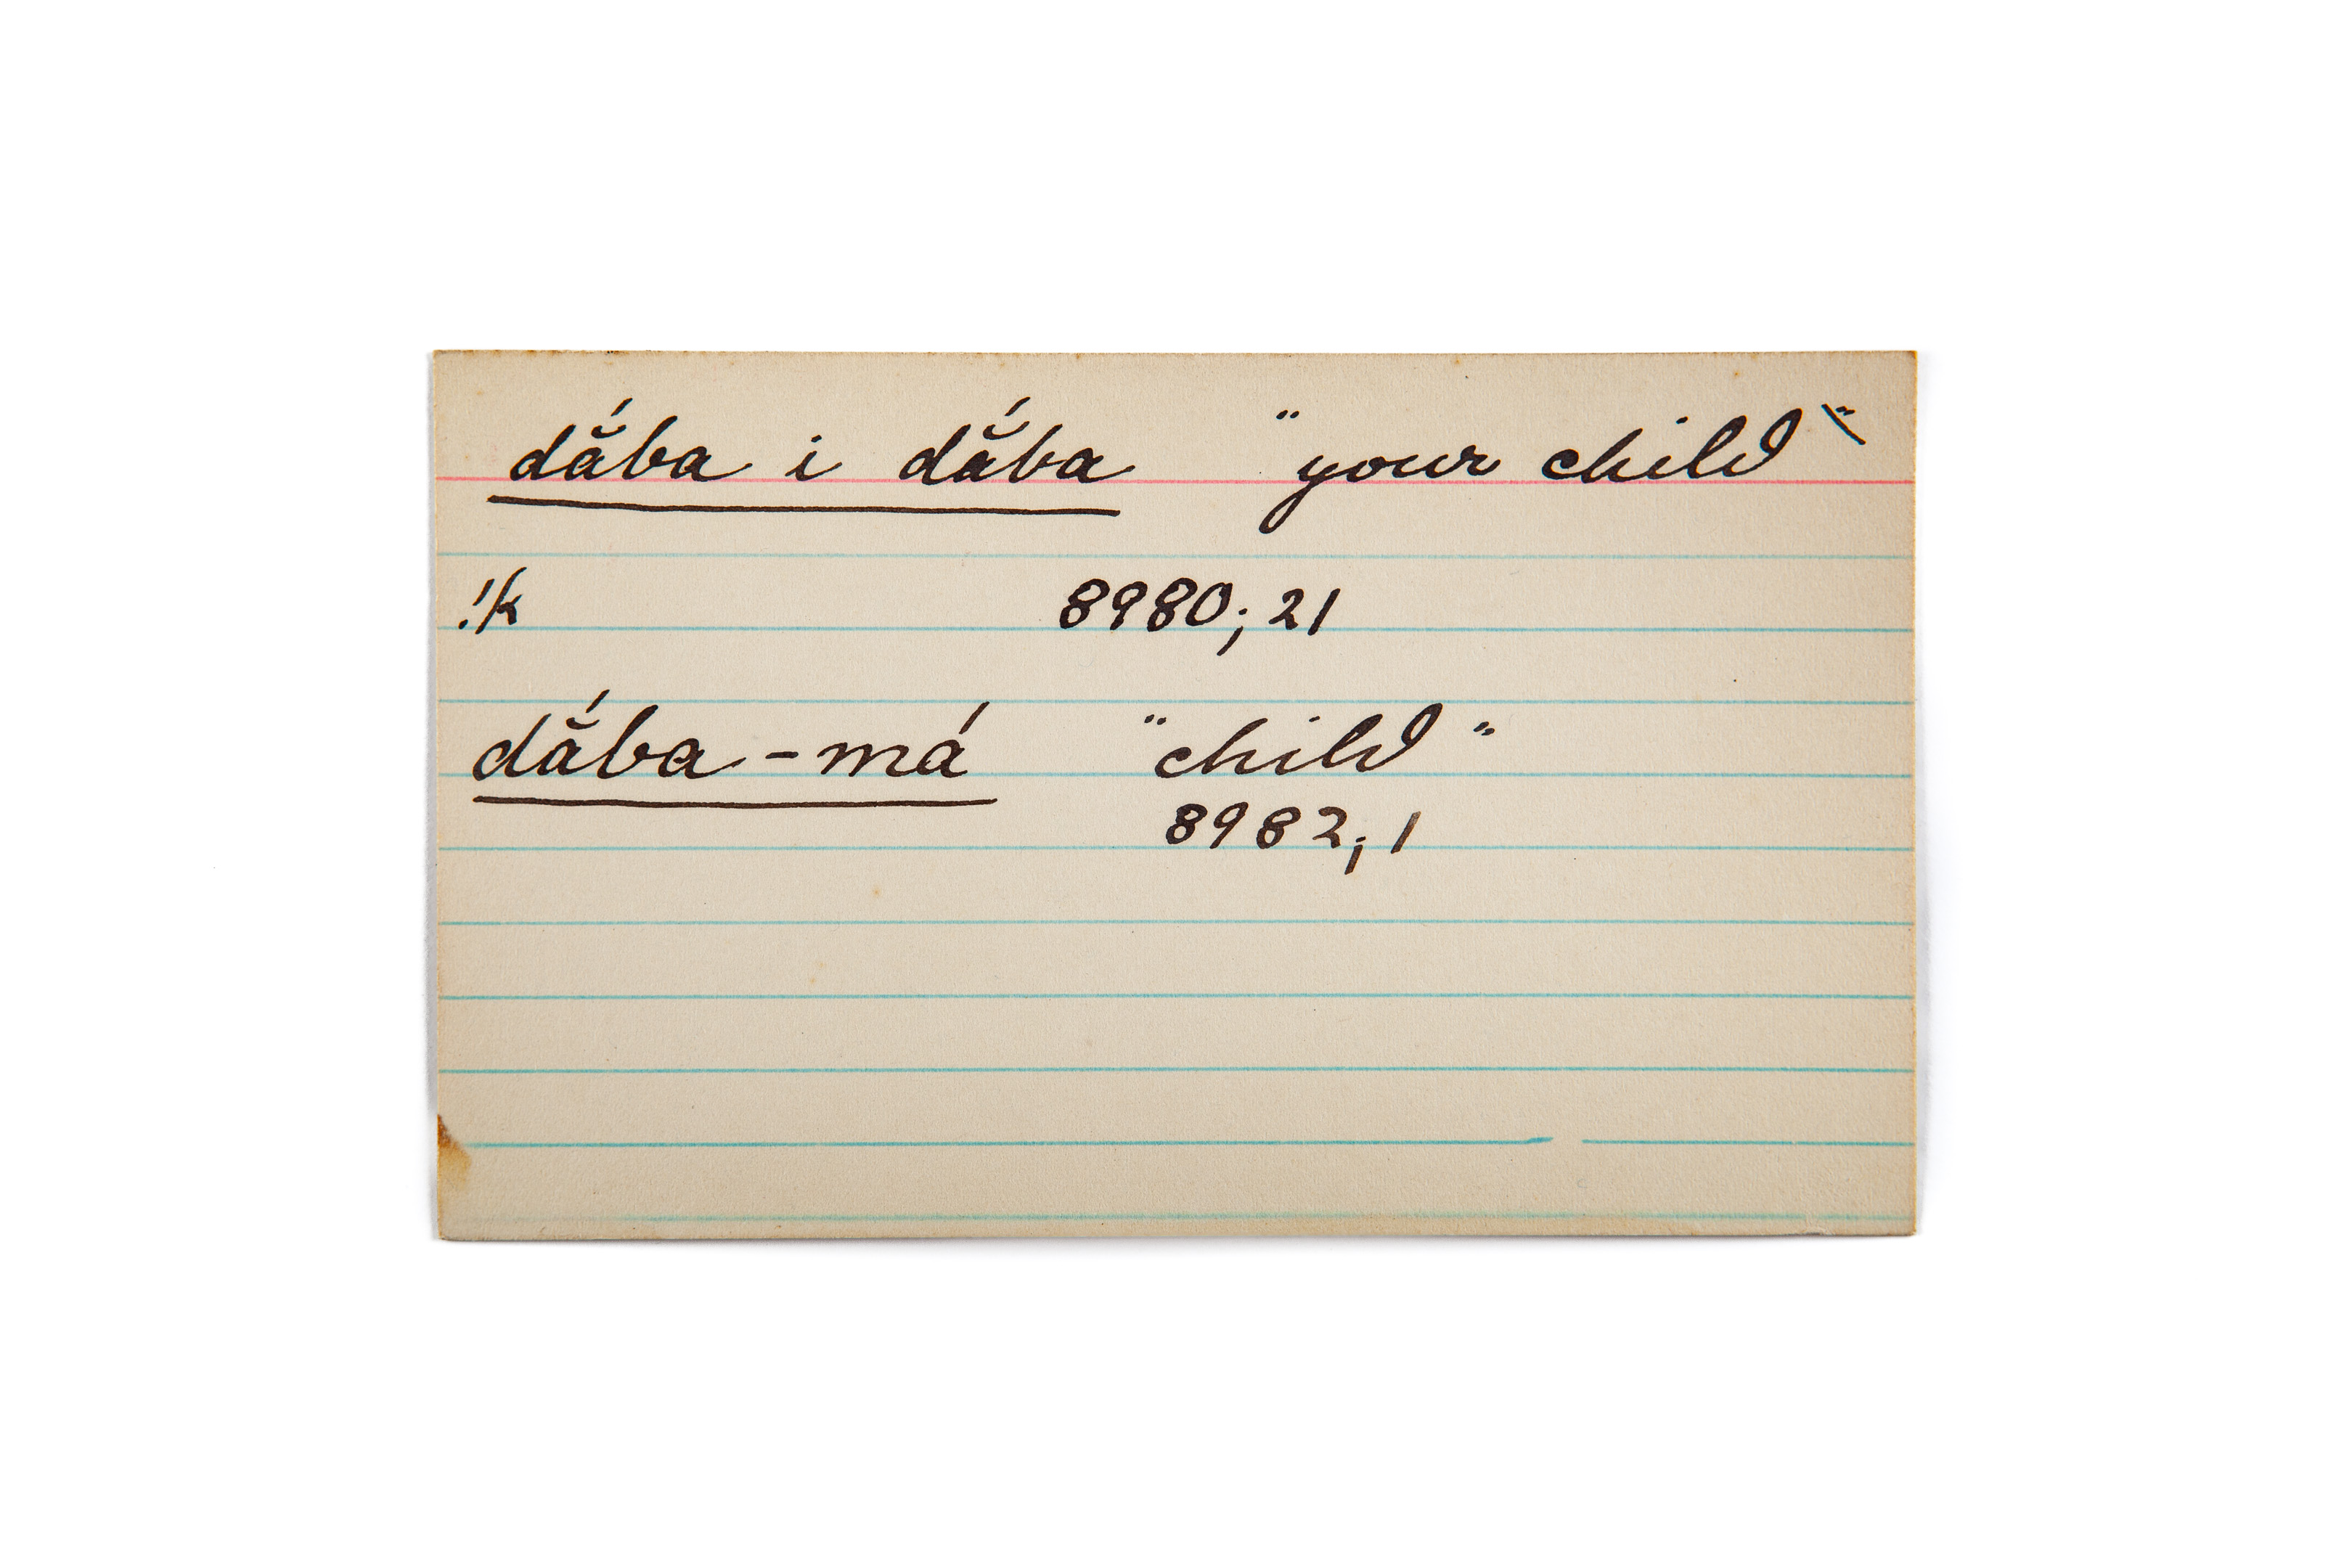 dắba i dắba "your child" \
!k 8980; 21
dắba - má "child"
8982; 1